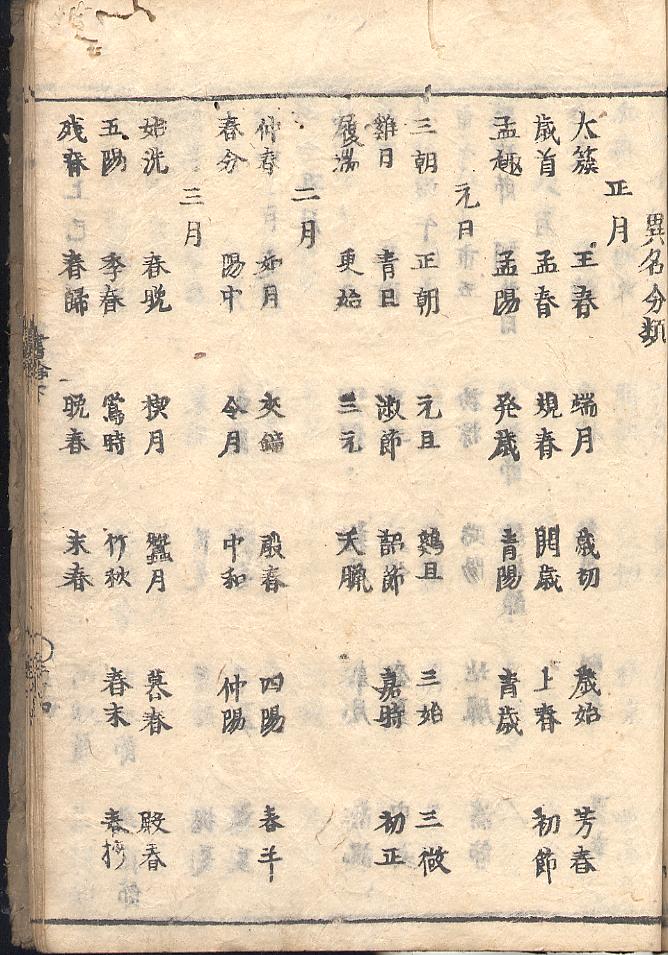 異名分類
正月
大簇 王春 端月 歳初 歳始 芳春
歳首 孟春 規春 開歳 上春 初節
孟陬 孟陽 発歳 青陽 青歳
元日
三朝 正朝 元旦 鷄旦 三始 三微
雞日 青旦 淑節 韶節 嘉時 初正
履端 更始 三元 天臘
二月
仲春 如月 夾鐘 殷春 四陽 春半
春分 陽中 令月 中和 仲陽
三月
姑洗 春晩 禊月 蠶月 暮春 殿春
五陽 季春 鶯時 竹秋 春末 春抄
残春 春歸 晩春 末春